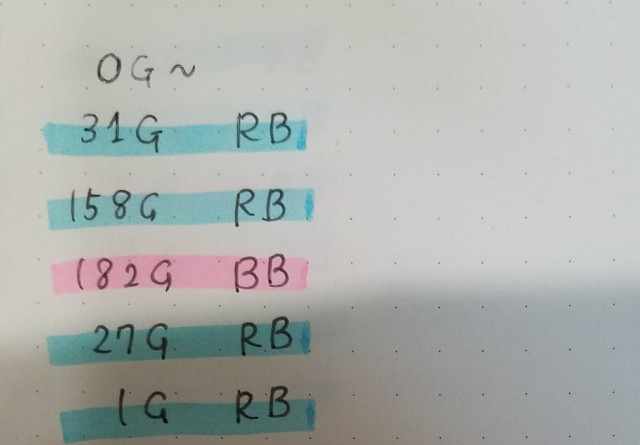 0G~
31G RB
158G RB
182G BB
27G RB
1G RB